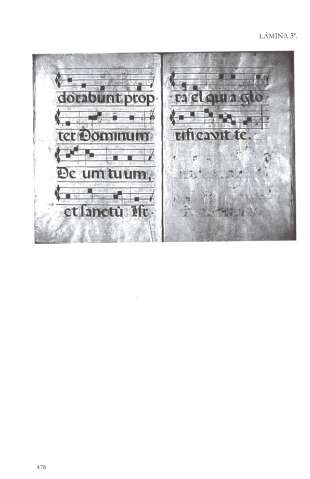 LÁMINA 3ª.
dorabunt prop
ter Dominum
De um tuum,
et sanctū Iſr
ra el qui a glo
rificavit te.
478